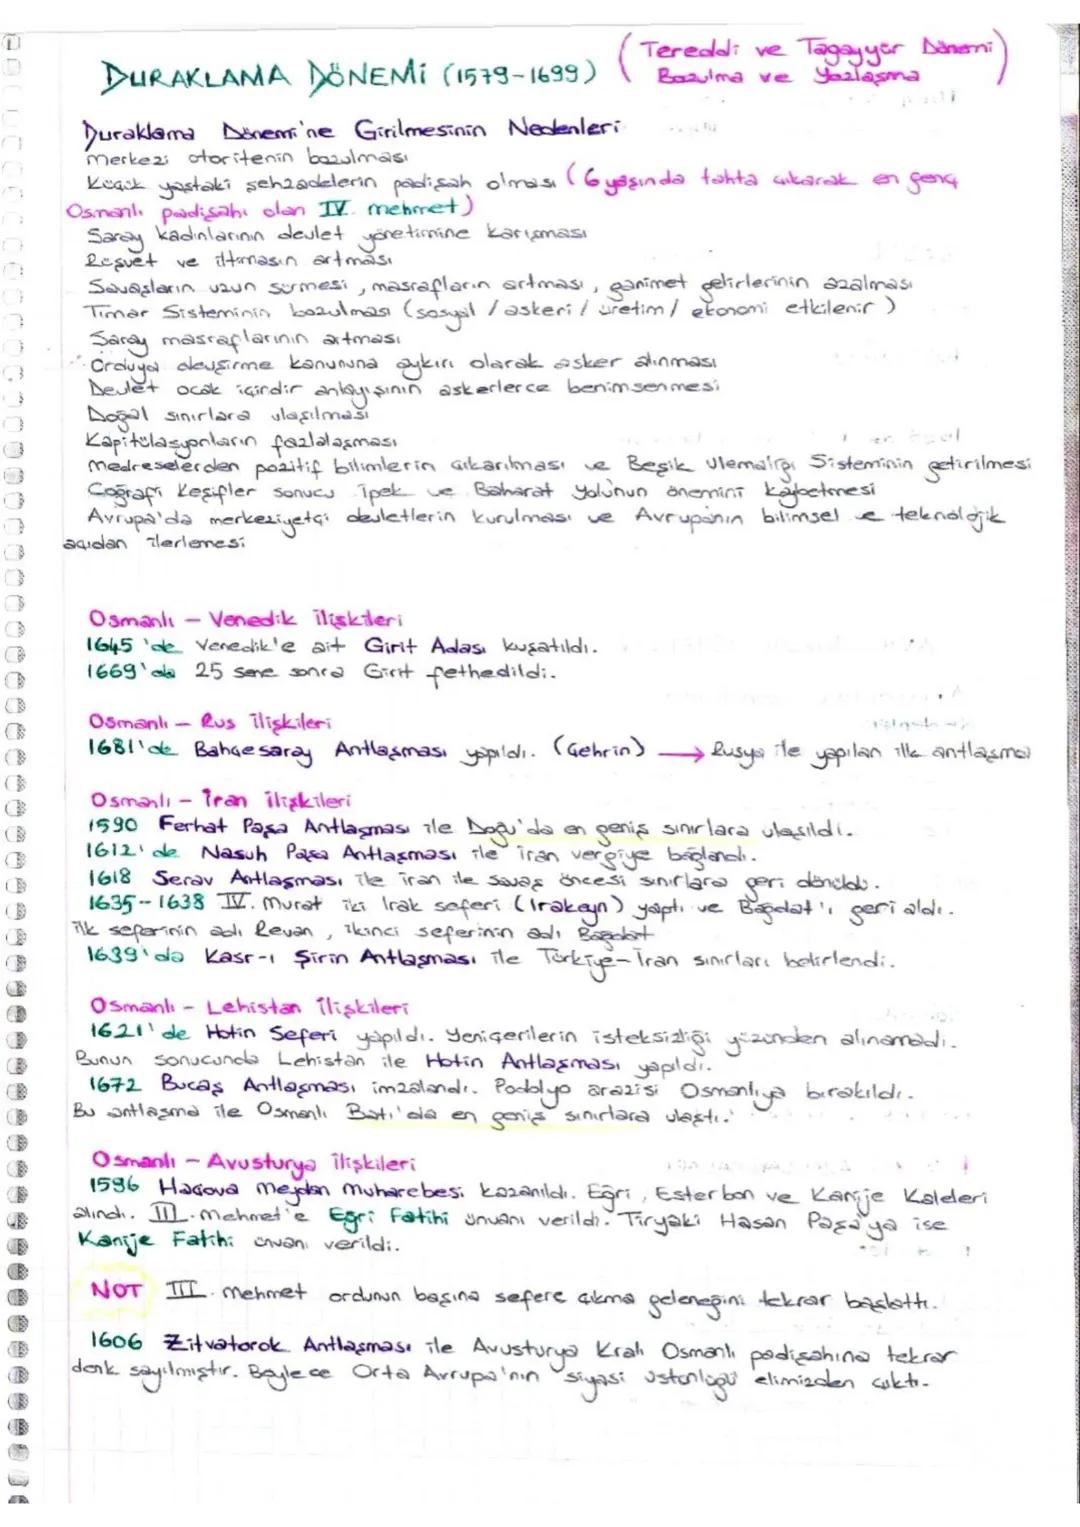 DURAKLAMA DÖNEMİ (1579-1699) (Tereddi ve Tagayyür Dönemi)
Bozulma ve Yozlaşma
Duraklama Dönemi'ne Girilmesinin Nedenleri
Merkezi otoritenin bozulması
Küçük yaştaki şehzadelerin padişah olması (6 yaşında tahta çıkarak en genç
Osmanlı padişahı olan IV. mehmet)
Saray kadınlarının devlet yönetimine karışması
Rüşvet ve iltimasın artması
Savaşların uzun sürmesi, masrafların artması, ganimet gelirlerinin azalması
Tımar Sisteminin bozulması (sosyal / askeri / üretim / ekonomi etkilenir)
Saray masraflarının artması
Orduya devşirme kanununa aykırı olarak asker alınması
Devlet ocak içindir anlayışının askerlerce benimsenmesi
Doğal sınırlara ulaşılması
Kapitülasyonların fazlalaşması
Medreselerden pozitif bilimlerin çıkarılması ve Beşik Ulemalığı Sisteminin getirilmesi
Coğrafi Keşifler sonucu İpek ve Baharat Yolunun önemini kaybetmesi
Avrupa'da merkeziyetçi devletlerin kurulması ve Avrupanın bilimsel ve teknolojik
açıdan ilerlemesi
Osmanlı - Venedik ilişkileri
1645'de Venedik'e ait Girit Adası kuşatıldı.
1669'da 25 sene sonra Girit fethedildi.
Osmanlı - Rus ilişkileri
1681'de Bahçesaray Antlaşması yapıldı. (Çehrin) → Rusya ile yapılan ilk antlaşma
Osmanlı - İran ilişkileri
1590 Ferhat Paşa Antlaşması ile Doğu'da en geniş sınırlara ulaşıldı.
1612'de Nasuh Paşa Antlaşması ile İran vergiye bağlandı.
1618 Serav Antlaşması ile İran ile savaş öncesi sınırlara geri dönüldü.
1635-1638 IV. Murat iki Irak seferi (Irakeyn) yaptı ve Bağdat'ı geri aldı.
İlk seferinin adı Revan, ikinci seferinin adı Bağdat
1639'da Kasr-ı Şirin Antlaşması ile Türkiye-İran sınırları belirlendi.
Osmanlı - Lehistan ilişkileri
1621'de Hotin Seferi yapıldı. Yeniçerilerin isteksizliği yüzünden alınamadı.
Bunun sonucunda Lehistan ile Hotin Antlaşması yapıldı.
1672 Bucaş Antlaşması imzalandı. Podolya arazisi Osmanlıya bırakıldı.
Bu antlaşma ile Osmanlı Batı'da en geniş sınırlara ulaştı.
Osmanlı - Avusturya ilişkileri
1596 Haçova Meydan Muharebesi kazanıldı. Eğri, Esterbon ve Kanije Kaleleri
alındı. III. Mehmet'e Eğri Fatihi ünvanı verildi. Tiryaki Hasan Paşa'ya ise
Kanije Fatihi ünvanı verildi.
NOT III. Mehmet ordunun başına sefere çıkma geleneğini tekrar başlattı.
1606 Zitvatorok Antlaşması ile Avusturya Kralı Osmanlı padişahına tekrar
denk sayılmıştır. Böylece Orta Avrupa'nın siyasi üstünlüğü elimizden çıktı.